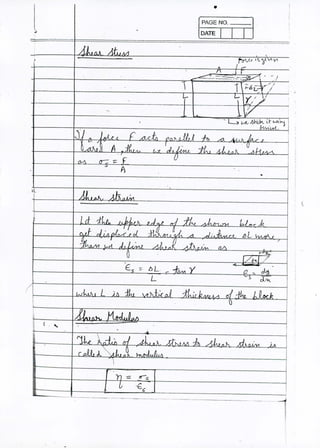 PAGE NO.
DATE
Shear Stress
Force is given
A F
ΔL
L L γ
L→ i.e. stick it using
If a force F acts parallel to a surface
(area) A, then we define the shear stress
as σs = F
A
Shear strain
Let the upper edge of the shown block
get displaced through a distance ΔL more,
Then we define shear strain as
Es = ΔL = tan γ
L
Es = dy
dx
where L is the vertical thickness of the block
Shear Modulus
The ratio of shear stress to shear strain is
called shear modulus.
η = σs
Es